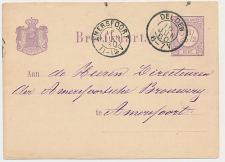 Briefkaart
AMERSFOORT
DELDEN
Aan de Heeren Directeuren
der Amersfoortsche Brouwery
te Amersfoort